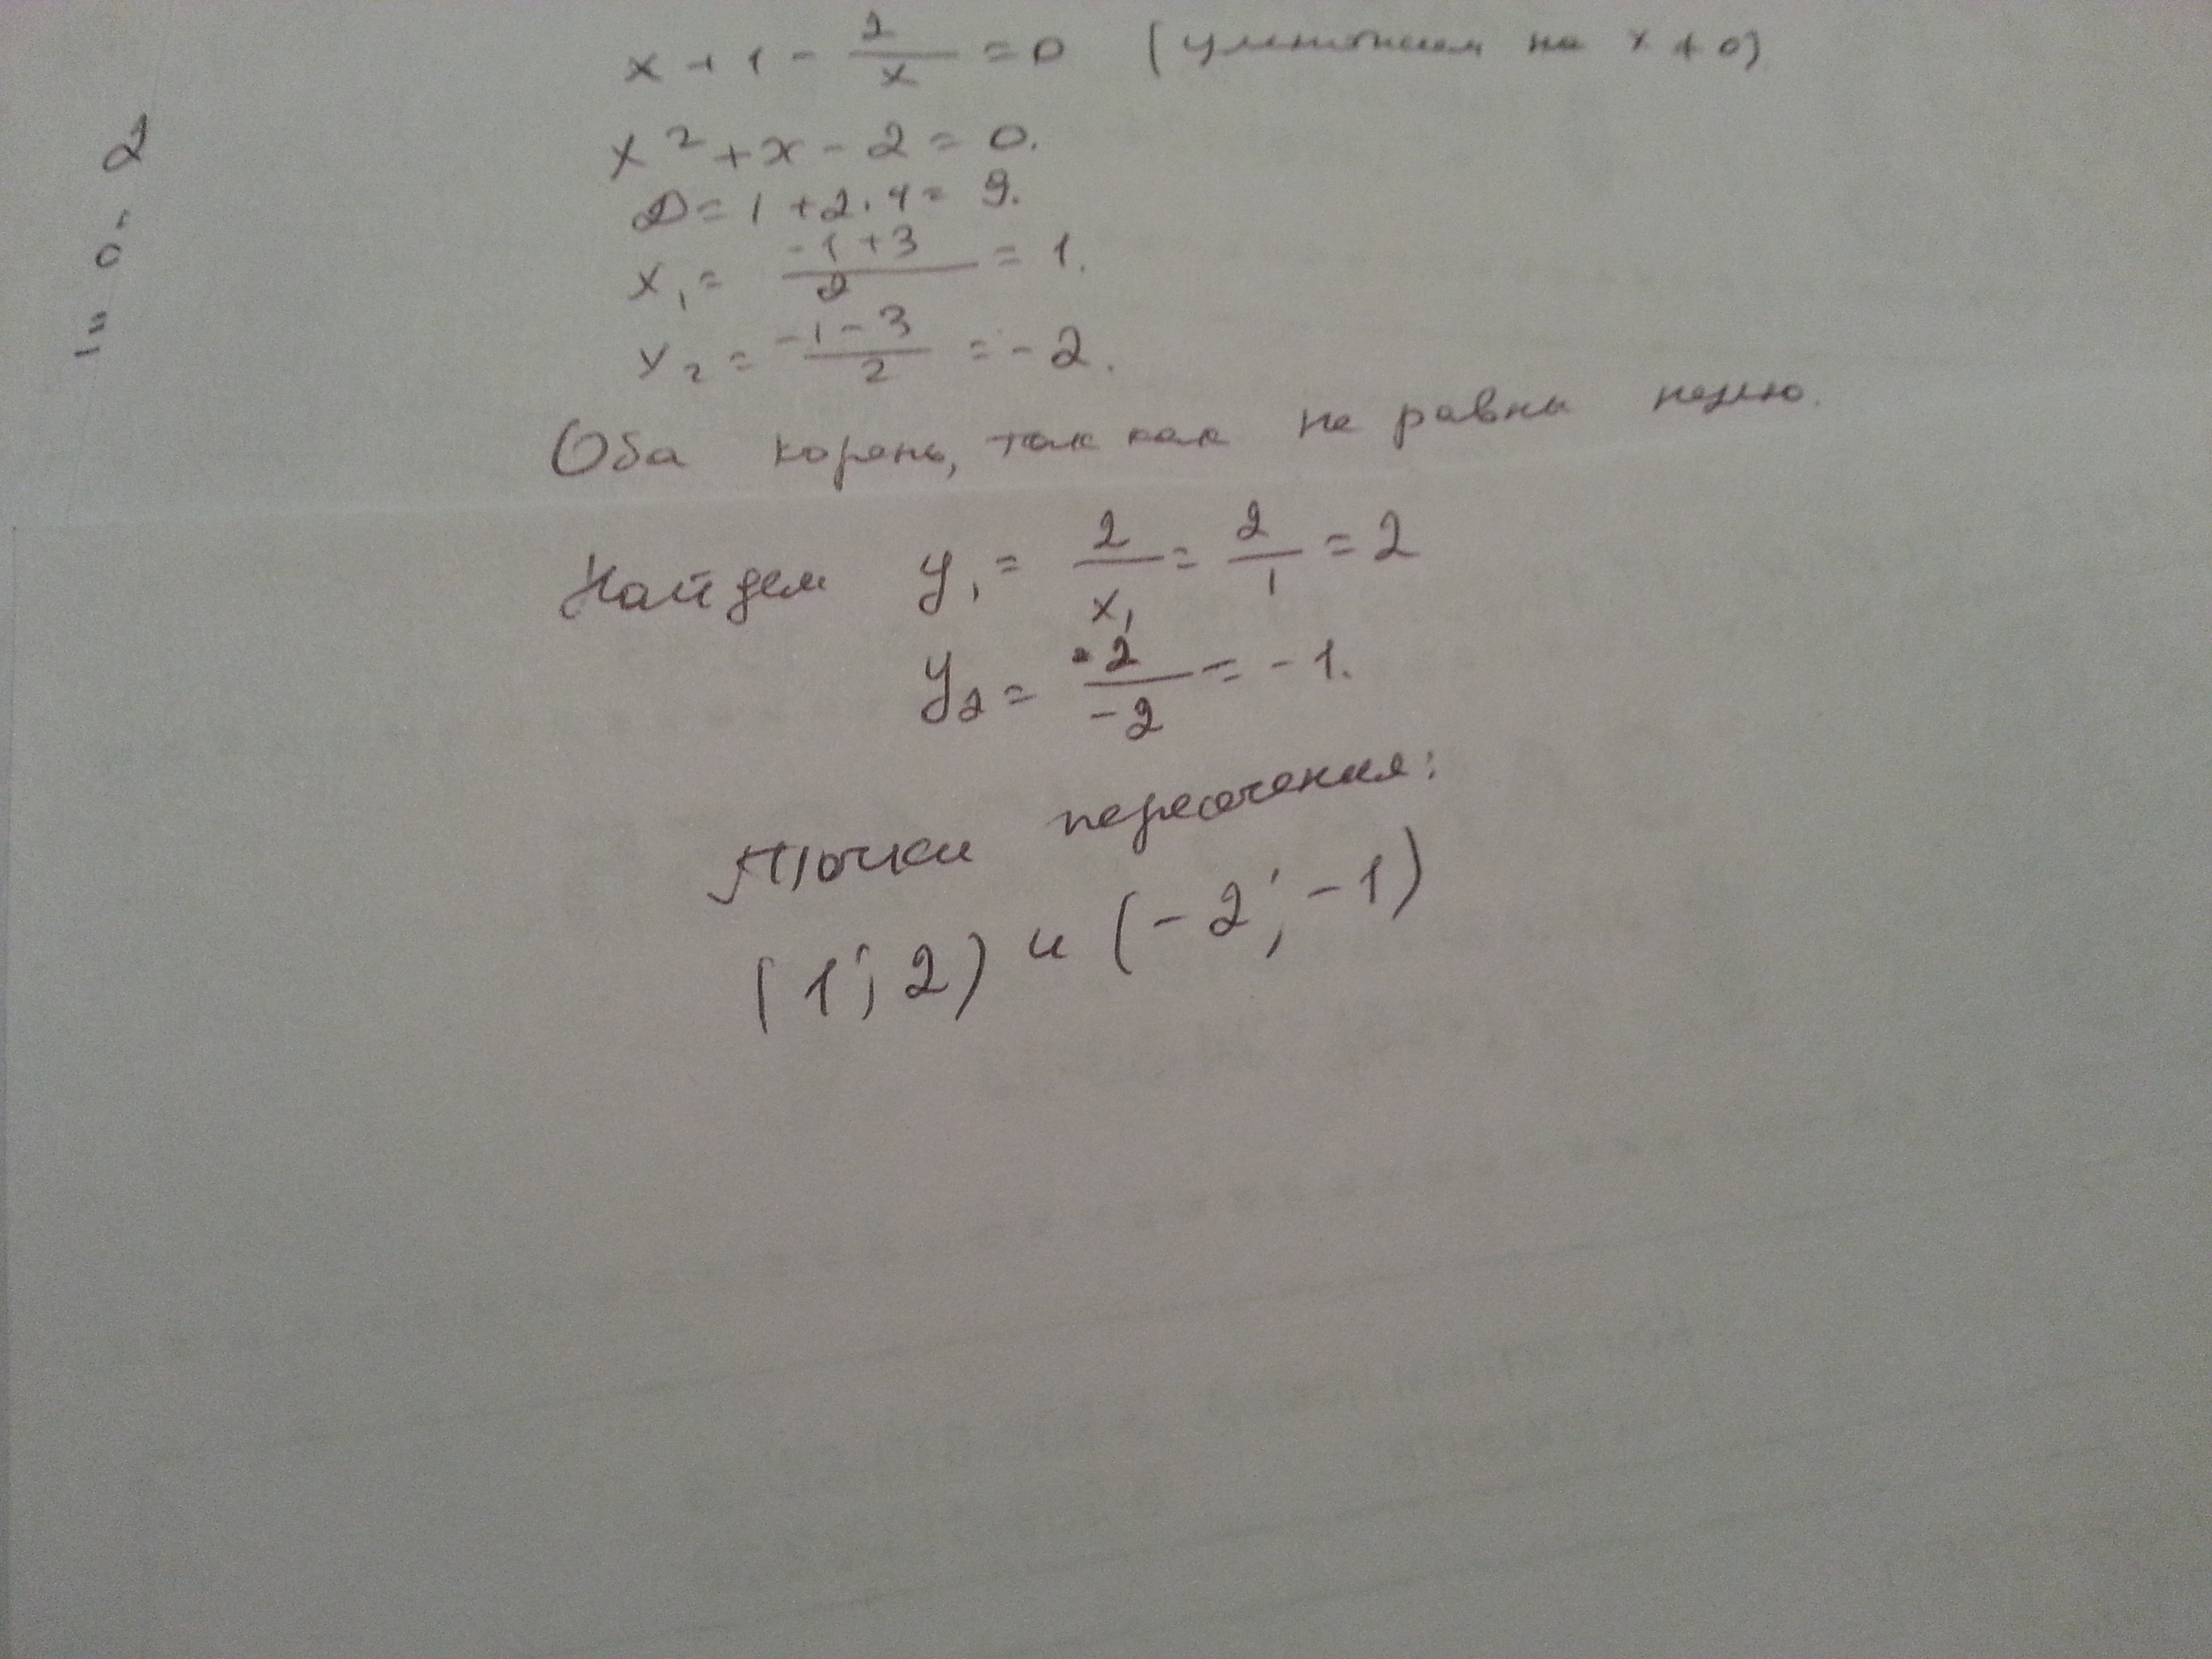 x + 1 - 2/x = 0 (умножаем на x ≠ 0)
x² + x - 2 = 0.
D = 1 + 2·4 = 9.
x₁ = (-1+3)/2 = 1.
x₂ = (-1-3)/2 = -2.
Оба корень, так как не равны нулю.
Найдем y₁ = 2/x₁ = 2/1 = 2
y₂ = 2/-2 = -1.
Точки пересечения:
(1; 2) и (-2; -1)